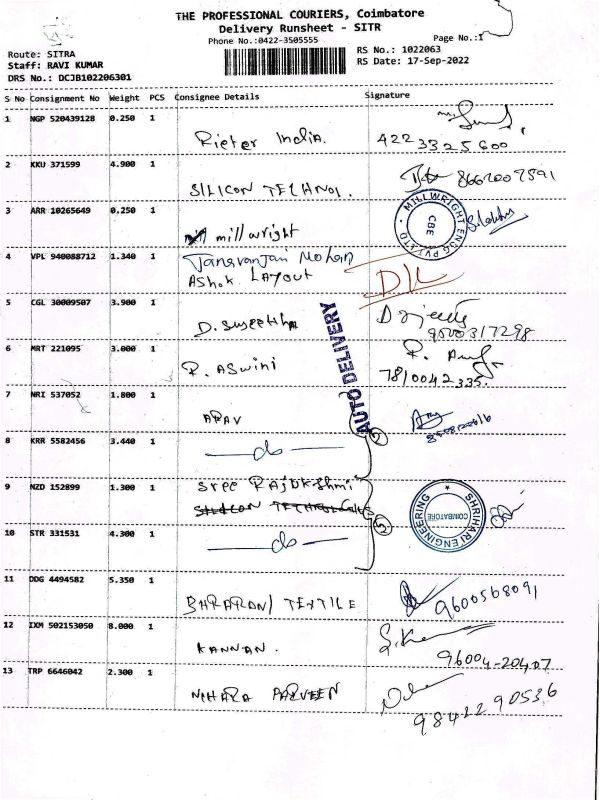 THE PROFESSIONAL COURIERS, Coimbatore
Delivery Runsheet - SITR
Phone No.:0422-3505555
Page No.:1
Route: SITRA
Staff: RAVI KUMAR
DRS No.: DCJB102206301
RS No.: 1022063
RS Date: 17-Sep-2022
S No Consignment No Weight PCS Consignee Details Signature
1 NGP 520439128 0.250 1 Rieter India. 4223325600
2 KKU 371599 4.900 1 SILICON TECHNOL. 8667007591
3 ARR 10265649 0.250 1 mill wright
MILLWRIGHT ENGG PVT LTD CBE
4 VPL 940088712 1.340 1 Janaranjani Mohan
Ashok Layout
D/L
5 CGL 30009507 3.900 1 D. Sujeetha
9500317298
AUTO DELIVERY
6 MRT 221095 3.000 1 R. ASwini R.
7810042335.
7 NRI 537052 1.800 1 ARAV
8 KRR 5582456 3.440 1 — do —
9 NZD 152899 1.300 1 Sree Rajalakshmi
SILICON TECHNOLOGIES
SHRIHARI ENGINEERING COIMBATORE
10 STR 331531 4.300 1 — do —
11 DDG 4494582 5.350 1 BHARANI TEXTILE 9600568091
12 IXM 502153050 8.000 1 KANNAN. S.K
96004-20407
13 TRP 6646042 2.300 1 NIHARA PARVEEN
98422 90536